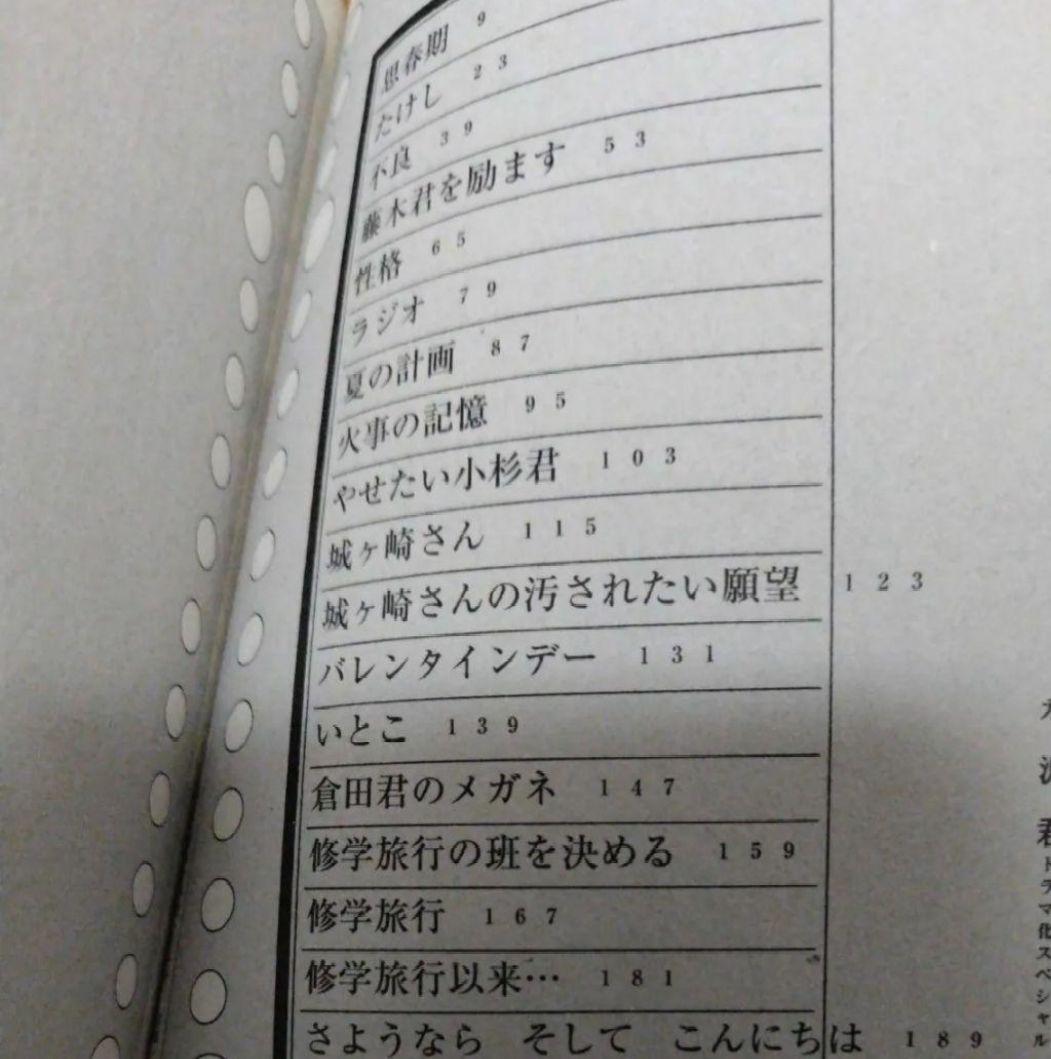 思春期 9
たけし 23
不良 39
藤木君を励ます 53
性格 65
ラジオ 79
夏の計画 87
火事の記憶 95
やせたい小杉君 103
城ヶ崎さん 115
城ヶ崎さんの汚されたい願望 123
バレンタインデー 131
いとこ 139
倉田君のメガネ 147
修学旅行の班を決める 159
修学旅行 167
修学旅行以来… 181
さようなら そして こんにちは 189
ドラマ化スペシャル